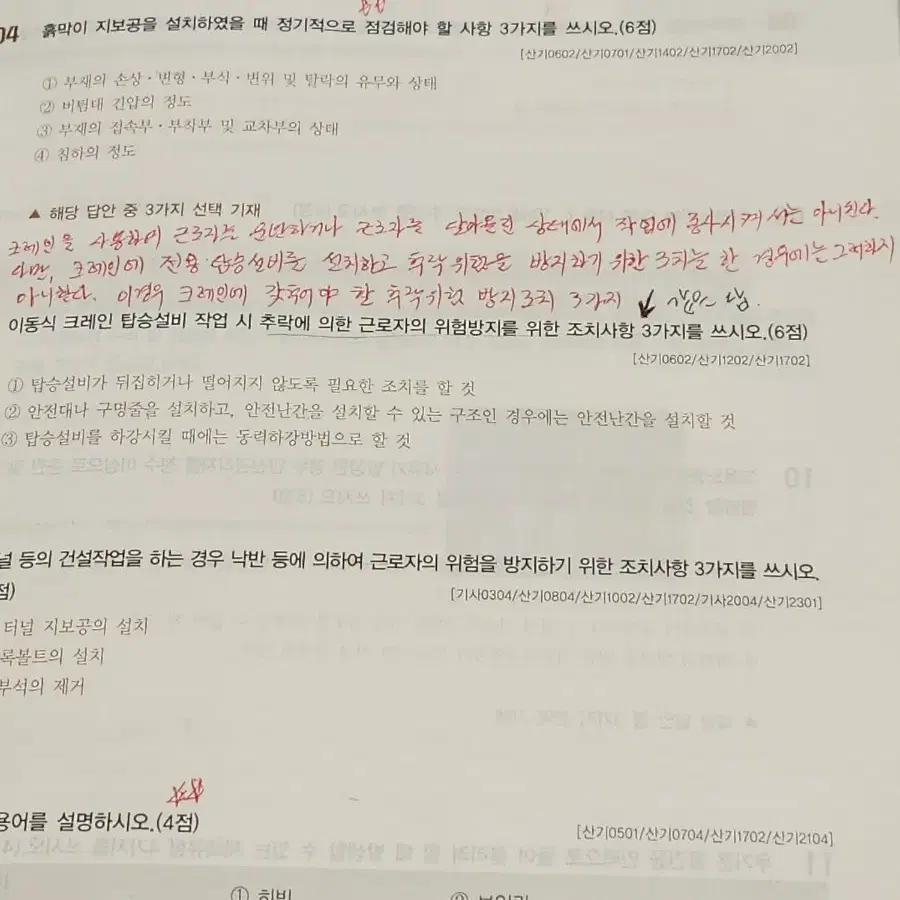 04 흙막이 지보공을 설치하였을 때 정기적으로 점검해야 할 사항 3가지를 쓰시오.(6점)
[산기0602/산기0701/산기1402/산기1702/산기2002]
① 부재의 손상·변형·부식·변위 및 탈락의 유무와 상태
② 버팀대 긴압의 정도
③ 부재의 접속부·부착부 및 교차부의 상태
④ 침하의 정도
▲ 해당 답안 중 3가지 선택 기재
크레인을 사용하여 근로자를 운반하거나 근로자를 달아올린 상태에서 작업에 종사시켜서는 아니된다.
다만, 크레인에 전용 탑승설비를 설치하고 추락 위험을 방지하기 위한 조치를 한 경우에는 그러하지
아니한다. 이경우 크레인에 갖추어야 할 추락위험 방지조치 3가지
이동식 크레인 탑승설비 작업 시 추락에 의한 근로자의 위험방지를 위한 조치사항 3가지를 쓰시오.(6점)
[산기0602/산기1202/산기1702]
① 탑승설비가 뒤집히거나 떨어지지 않도록 필요한 조치를 할 것
② 안전대나 구명줄을 설치하고, 안전난간을 설치할 수 있는 구조인 경우에는 안전난간을 설치할 것
③ 탑승설비를 하강시킬 때에는 동력하강방법으로 할 것
널 등의 건설작업을 하는 경우 낙반 등에 의하여 근로자의 위험을 방지하기 위한 조치사항 3가지를 쓰시오.
점)
[기사0304/산기0804/산기1002/산기1702/기사2004/산기2301]
터널 지보공의 설치
록볼트의 설치
부석의 제거
용어를 설명하시오.(4점)
[산기0501/산기0704/산기1702/산기2104]
① 히빙 ② 보일링